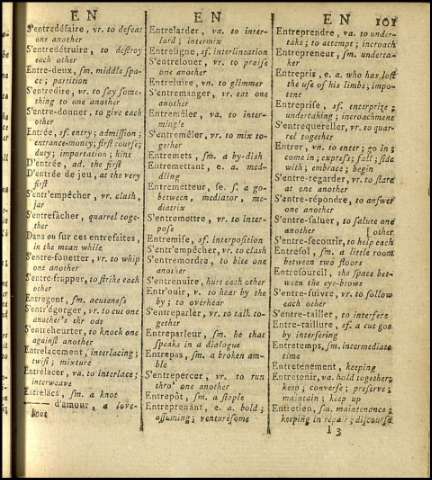 EN
EN
EN
101
S'entredéfaire, vr. to defeat
one another
S'entredétruire, to destroy
each other
Entre-deux, sm. middle space;
partition
S'entredire, vr. to say something
to one another
S'entre-donner, to give each
other
Entrée, sf. entry; admission;
entrance-money; first course;
duty; importation; hint
D'entrée, ad. the first
D'entrée de jeu, at the very
first
S'entr'empêcher, vr. clash,
jar
S'entrefâcher, quarrel together
Dans ou sur ces entrefaites,
in the mean while
S'entre-fouetter, vr. to whip
one another
S'entre-frapper, to strike each
other
Entregent, sm. acuteness
S'entr'égorger, vr. to cut one
another's throats
S'entreheurter, to knock one
against another
Entrelacement, interlacing;
twist; mixture
Entrelacer, va. to interlace;
interweave
Entrelacs, sm. a knot
d'amour, a love-
knot
Entrelarder, va. to interlard;
intermix
Entreligne, sf. interlineation
S'entrelouer, vr. to praise
one another
Entreluire, vn. to glimmer
S'entremanger, vr. eat one
another
Entremêler, va. to intermingle
S'entremêler, vr. to mix together
Entremets, sm. a by-dish
Entremettant, e. a. meddling
Entremetteur, se. s. a go-
between, mediator, mediatrix
S'entremettre, vr. to interpose
Entremise, sf. interposition
S'entr'empêcher, vr. to clash
S'entremordre, to bite one
another
S'entrenuire, hurt each other
Entr'ouir, v. to hear by the
by; to overhear
S'entreparler, vr. to talk together
Entreparleur, sm. he that
speaks in a dialogue
Entrepas, sm. a broken amble
S'entrepercer, vr. to run
thro' one another
Entrepôt, sm. a staple
Entreprenant, e. a. bold;
assuming; venturesome
Entreprendre, va. to undertake;
to attempt; incroach
Entrepreneur, sm. undertaker
Entrepris, e. a. who has lost
the use of his limbs; impotent
Entreprise, sf. enterprize;
undertaking; incroachment
S'entrequereller, vr. to quarrel
together
Entrer, vn. to enter; go in;
come in; express; fall; side
with; embrace; begin
S'entre-regarder, vr. to stare
at one another
S'entre-répondre, to answer
one another
S'entre-saluer, to salute one
[other
S'entre-secourir, to help each
Entresol, sm. a little room
between two floors
Entresourcil, the space between
the eye-brows
S'entre-suivre, vr. to follow
each other
S'entre-tailler, to interfere
Entre-taillure, sf. a cut got
by interfering
Entretemps, sm. intermediate
time
Entretenément, keeping
Entretenir, va. hold together;
keep; converse; preserve;
maintain; keep up
Entretien, sm. maintenance;
keeping in repair; discourse
I 3